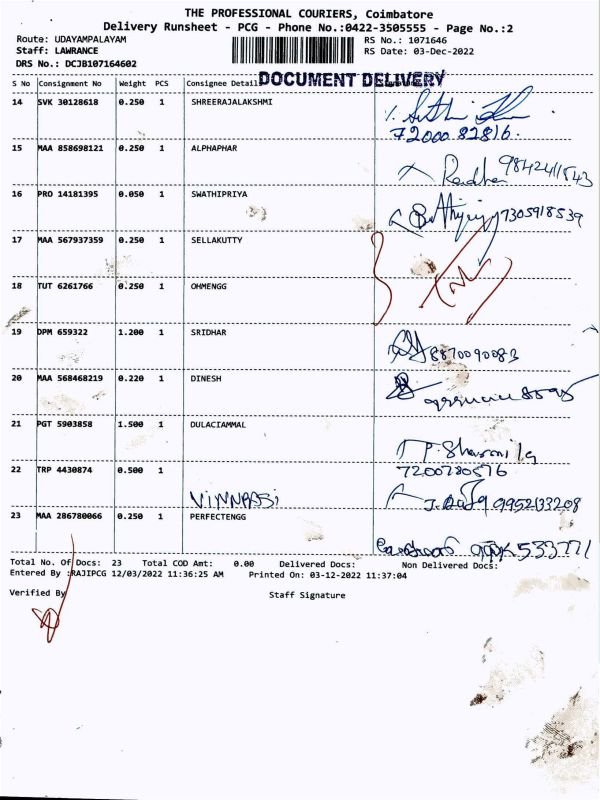 THE PROFESSIONAL COURIERS, Coimbatore
Delivery Runsheet - PCG - Phone No.:0422-3505555 - Page No.:2
Route: UDAYAMPALAYAM
RS No.: 1071646
Staff: LAWRANCE
RS Date: 03-Dec-2022
DRS No.: DCJB107164602
DOCUMENT DELIVERY
S No Consignment No Weight PCS Consignee Details
14 SVK 30128618 0.250 1 SHREERAJALAKSHMI
72000 82816.
15 MAA 858698121 0.250 1 ALPHAPHAR
16 PRO 14181395 0.050 1 SWATHIPRIYA
7305918539
17 MAA 567937359 0.250 1 SELLAKUTTY
18 TUT 6261766 0.250 1 OHMENGG
19 DPM 659322 1.200 1 SRIDHAR
8870090083
20 MAA 568468219 0.220 1 DINESH
21 PGT 5903858 1.500 1 DULACIAMMAL
22 TRP 4430874 0.500 1
7200780576
9952133208
23 MAA 286780066 0.250 1 PERFECTENGG
Total No. Of Docs: 23 Total COD Amt: 0.00 Delivered Docs: Non Delivered Docs:
Entered By :RAJIPCG 12/03/2022 11:36:25 AM Printed On: 03-12-2022 11:37:04
Verified By Staff Signature